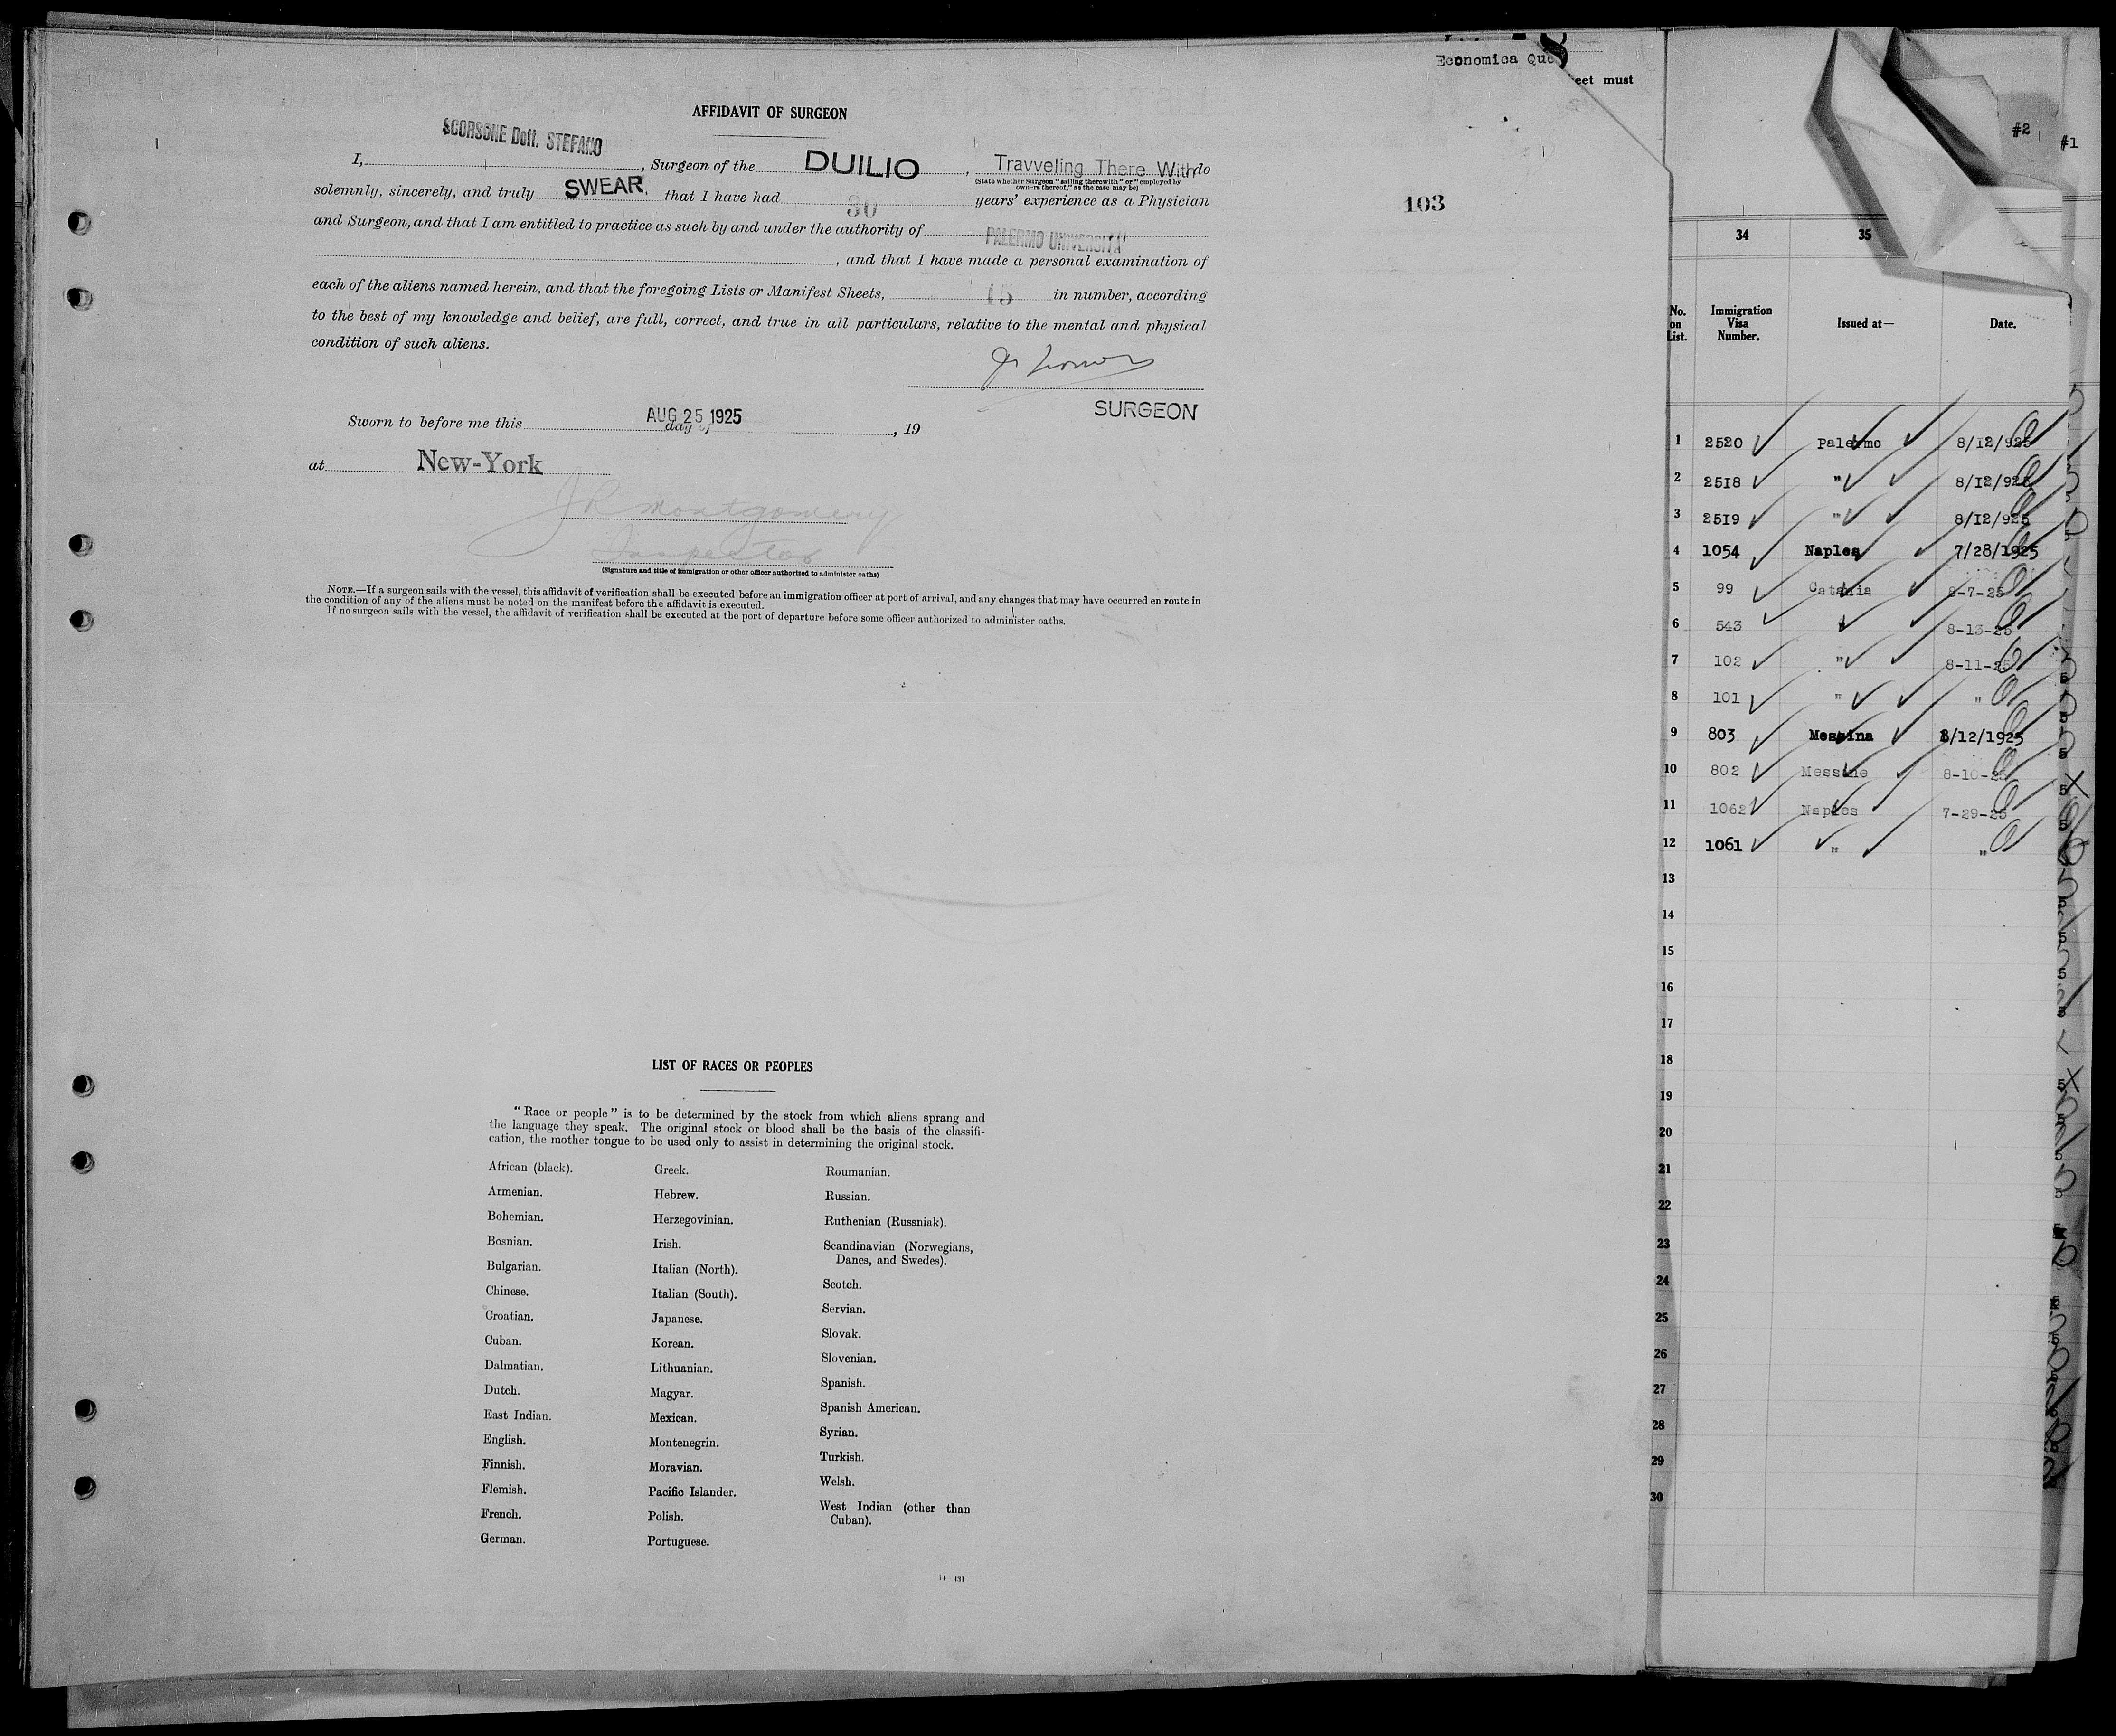 Economica
eet must
AFFIDAVIT OF SURGEON
SCORSONE Dott. STEFANO
I, , Surgeon of the DUILIO, Travveling There With do
(State whether surgeon "sailing therewith" or "employed by owners thereof," as the case may be)
solemnly, sincerely, and truly SWEAR. that I have had 30 years' experience as a Physician
and Surgeon, and that I am entitled to practice as such by and under the authority of PALERMO UNIVERSITA'
, and that I have made a personal examination of
each of the aliens named herein, and that the foregoing Lists or Manifest Sheets, 15 in number, according
to the best of my knowledge and belief, are full, correct, and true in all particulars, relative to the mental and physical
condition of such aliens.
SURGEON
Sworn to before me this AUG 25 1925 day of , 19
at New-York
J R Montgomery
Inspector
(Signature and title of immigration or other officer authorized to administer oaths)
NOTE.—If a surgeon sails with the vessel, this affidavit of verification shall be executed before an immigration officer at port of arrival, and any changes that may have occurred en route in
the condition of any of the aliens must be noted on the manifest before the affidavit is executed.
If no surgeon sails with the vessel, the affidavit of verification shall be executed at the port of departure before some officer authorized to administer oaths.
103
LIST OF RACES OR PEOPLES
"Race or people" is to be determined by the stock from which aliens sprang and
the language they speak. The original stock or blood shall be the basis of the classifi-
cation, the mother tongue to be used only to assist in determining the original stock.
African (black).
Armenian.
Bohemian.
Bosnian.
Bulgarian.
Chinese.
Croatian.
Cuban.
Dalmatian.
Dutch.
East Indian.
English.
Finnish.
Flemish.
French.
German.
Greek.
Hebrew.
Herzegovinian.
Irish.
Italian (North).
Italian (South).
Japanese.
Korean.
Lithuanian.
Magyar.
Mexican.
Montenegrin.
Moravian.
Pacific Islander.
Polish.
Portuguese.
Roumanian.
Russian.
Ruthenian (Russniak).
Scandinavian (Norwegians,
Danes, and Swedes).
Scotch.
Servian.
Slovak.
Slovenian.
Spanish.
Spanish American.
Syrian.
Turkish.
Welsh.
West Indian (other than
Cuban).
#2
#1
34 35
No. on List. Immigration Visa Number. Issued at— Date.
1 2520 Palermo 8/12/925
2 2518 " 8/12/925
3 2519 " 8/12/925
4 1054 Naples 7/28/1925
5 99 Catania 8-7-25
6 543 " 8-13-25
7 102 " 8-11-25
8 101 " "
9 803 Messina 8/12/1925
10 802 Messine 8-10-25
11 1062 Naples 7-29-25
12 1061 " "
13
14
15
16
17
18
19
20
21
22
23
24
25
26
27
28
29
30